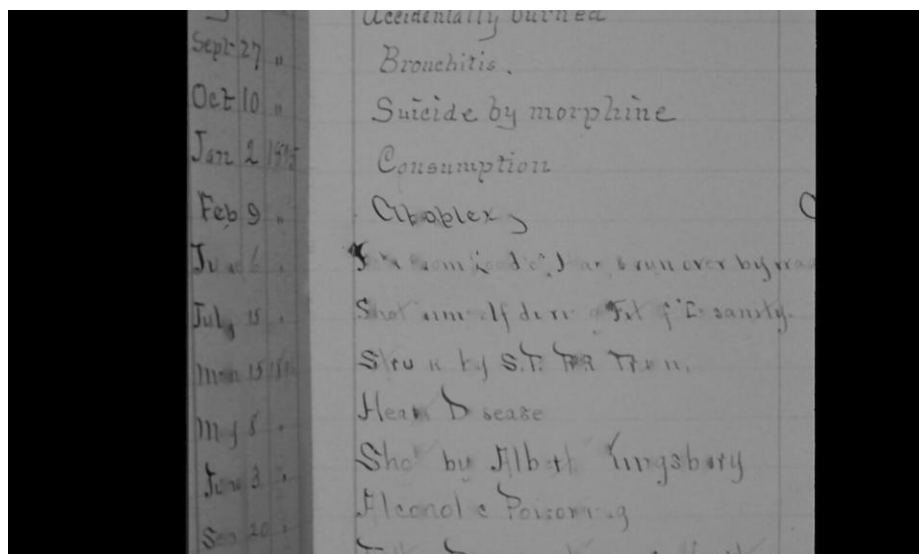 Accidentally burned
Sept 27 " Bronchitis.
Oct 10 " Suicide by morphine
Jan 2 Consumption
Feb 9 " Apoplexy
June 6 " & run over by
July 15 " Shot himself during Fit of Insanity.
15 Struck by S.P. RR Train.
May 8 " Heart Disease
June 3 " Shot by Albert Kingsbury
Sep 20 " Alcoholic Poisoning